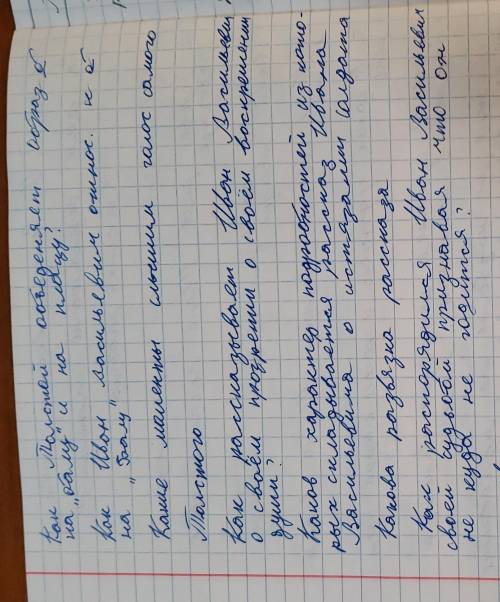 Как Толстой объеденяет образ б
на "балу" и на плацу?
Как Иван Васильевич относ. к б
на "балу"
Какие моменты слышим голос самого
Толстого
Как рассказывает Иван Васильевич
о своём прозрении о своём воскрешении
души?
Каков характер подробностей из кото-
рых складывается рассказ Ивана
Васильевича о истязании солдата
Какова развязка рассказа
Как распорядился Иван Васильевич
своей судьбой признавая что он
не куда не годится?